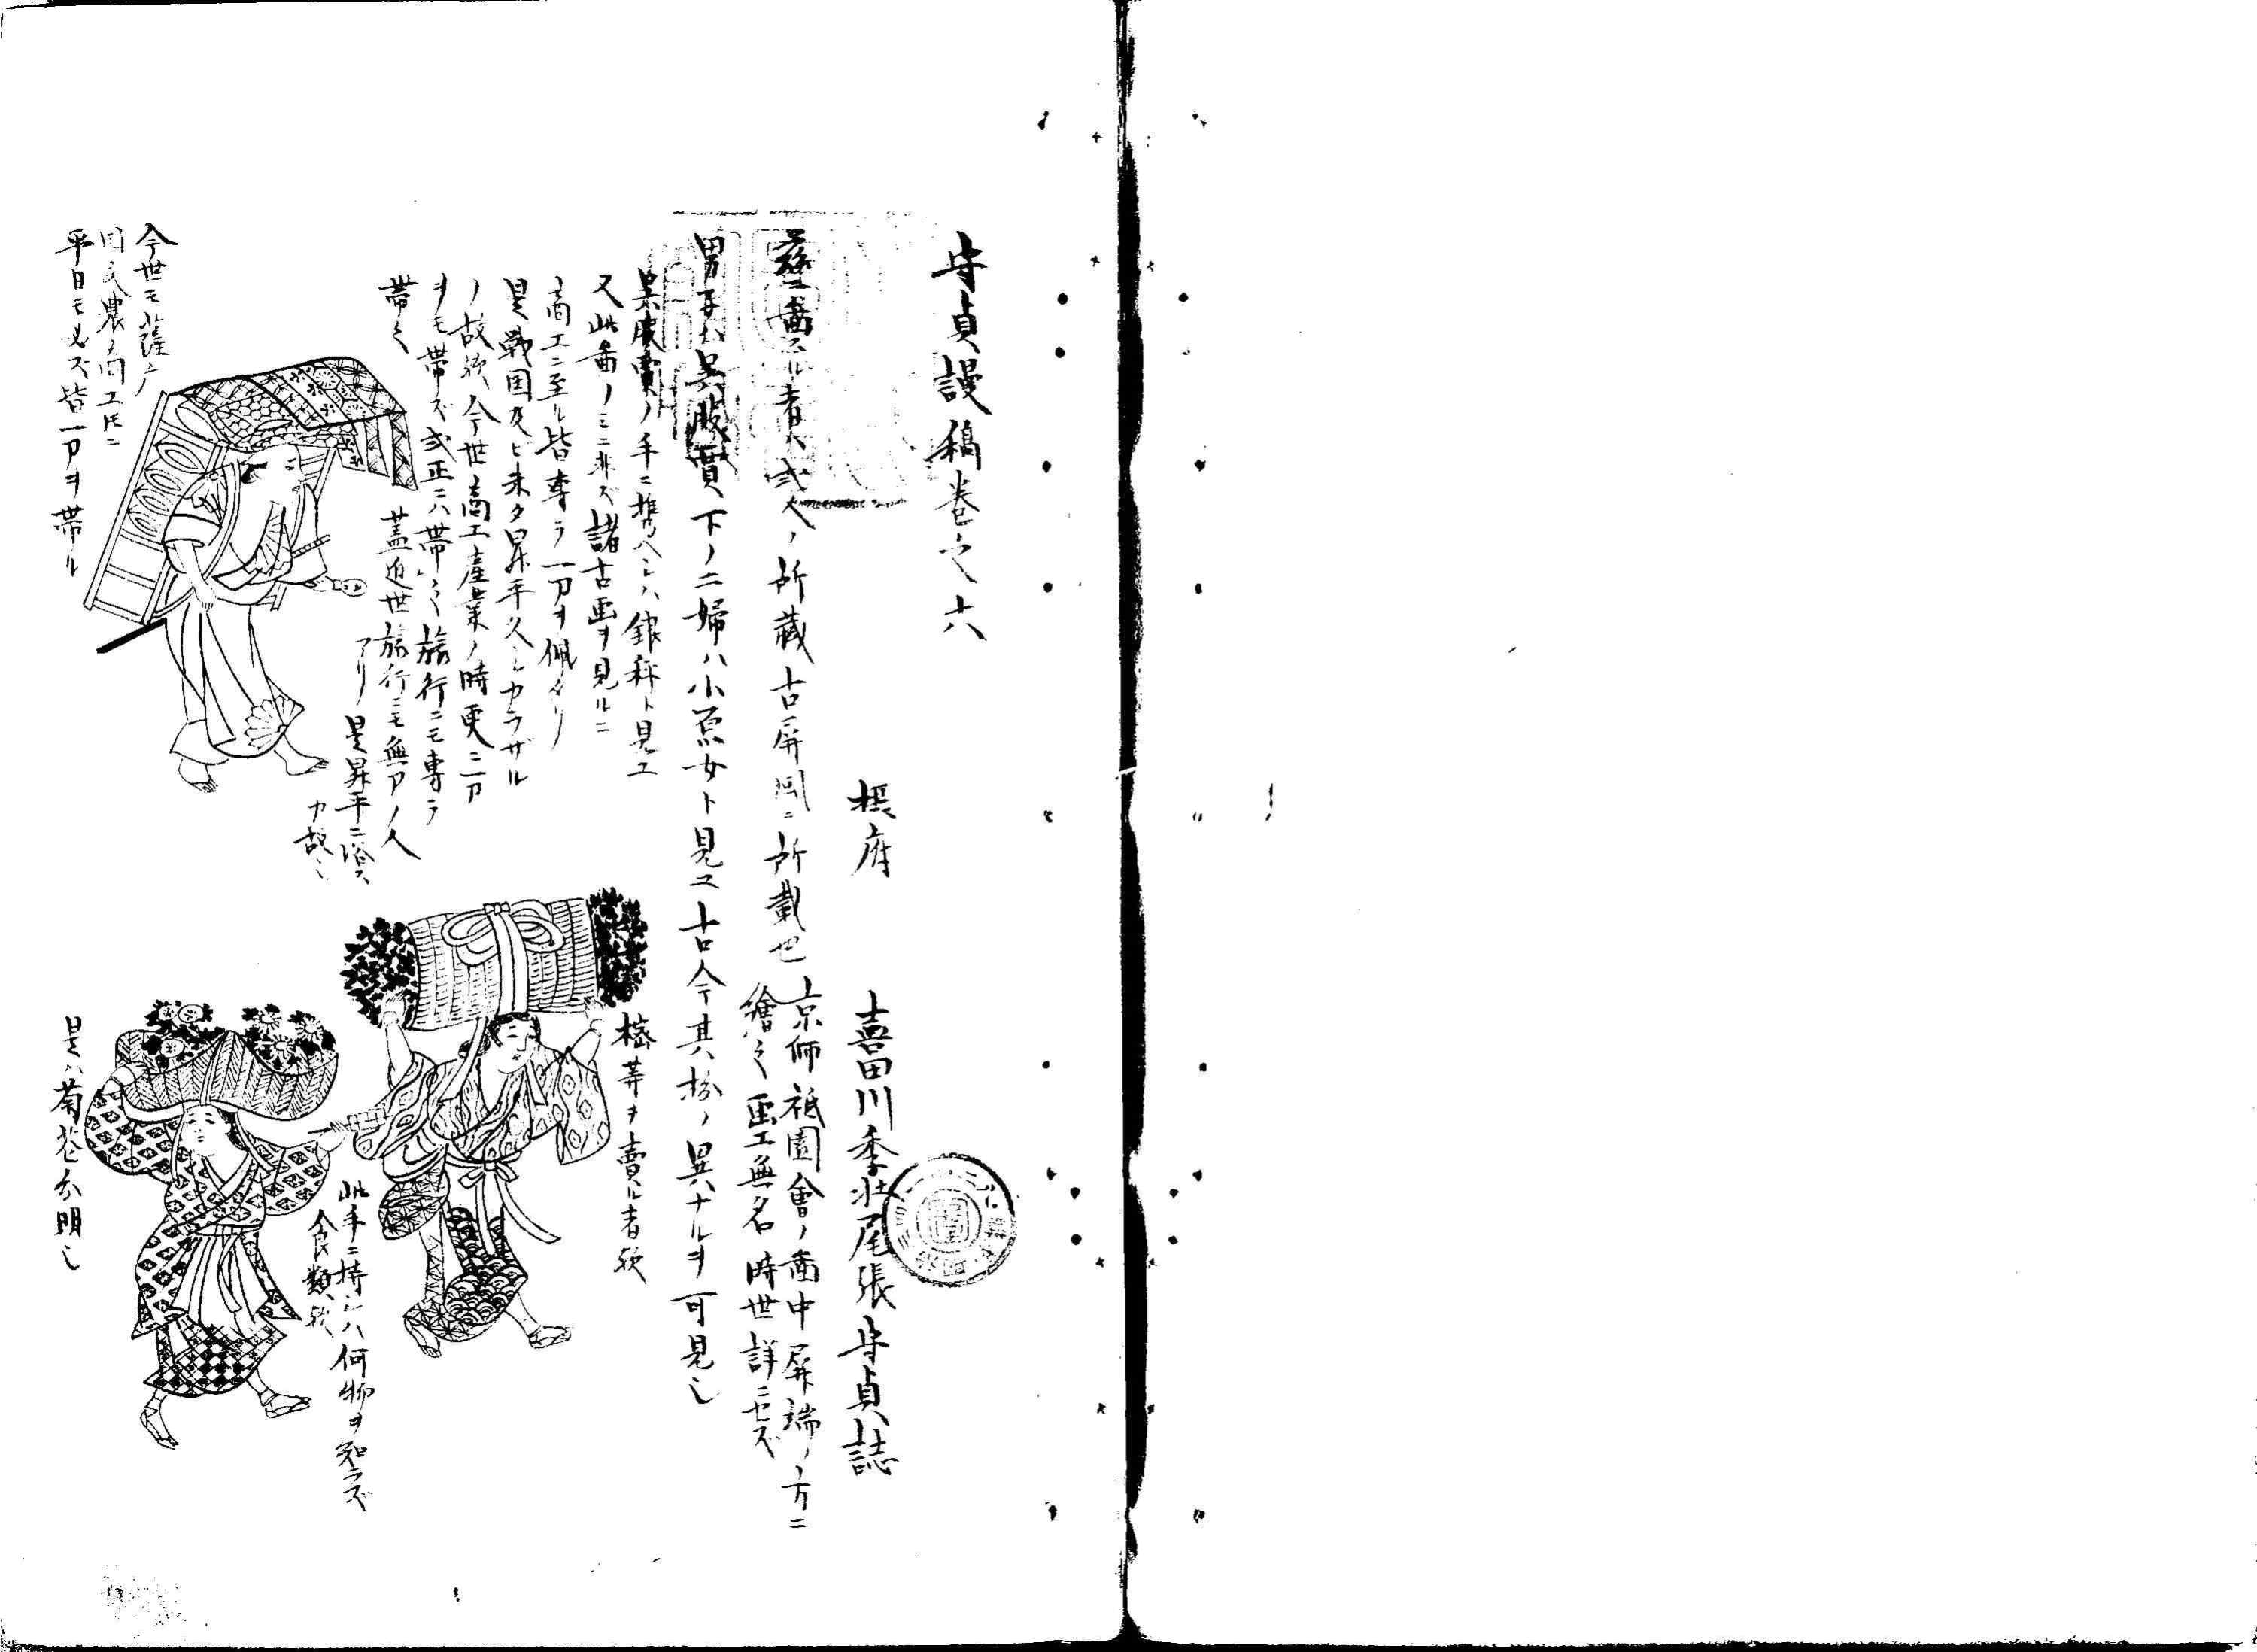 守貞謾稿巻之六
摂府　喜田川季荘尾張守貞誌
茲ニ啚スル者ハ或人ノ所蔵古屏風ニ所載也
京師祗園會ノ啚中屏端ノ方ニ
繪之画工無名時世詳ニセズ
男子ハ呉服賣下ノ二婦ハ小原女ト見ユ古今其扮ノ異ナルヲ可見し
呉服賣ノ手ニ携ヘシハ銀秤ト見エ
又此啚ノミニ非ズ諸古画ヲ見ルニ
商工ニ至ル皆専ラ一刀ヲ佩タリ
是戦国及ヒ未タ昇平久シカラザル
ノ故欤今世商工産業ノ時更ニ一刀
ヲモ帯ズ或正ニハ帯之旅行ニモ専ラ
帯之　蓋近世旅行ニモ無刀ノ人
アリ　是昇平ニ浴ス
カ故し
今世モ薩广
国民農商工トモニ
平日モ必ズ皆一刀ヲ帯ル
樒等ヲ賣ル者欤
此手ニ持シハ何物ヲ知ラズ
食類欤
是ハ菊花分明し